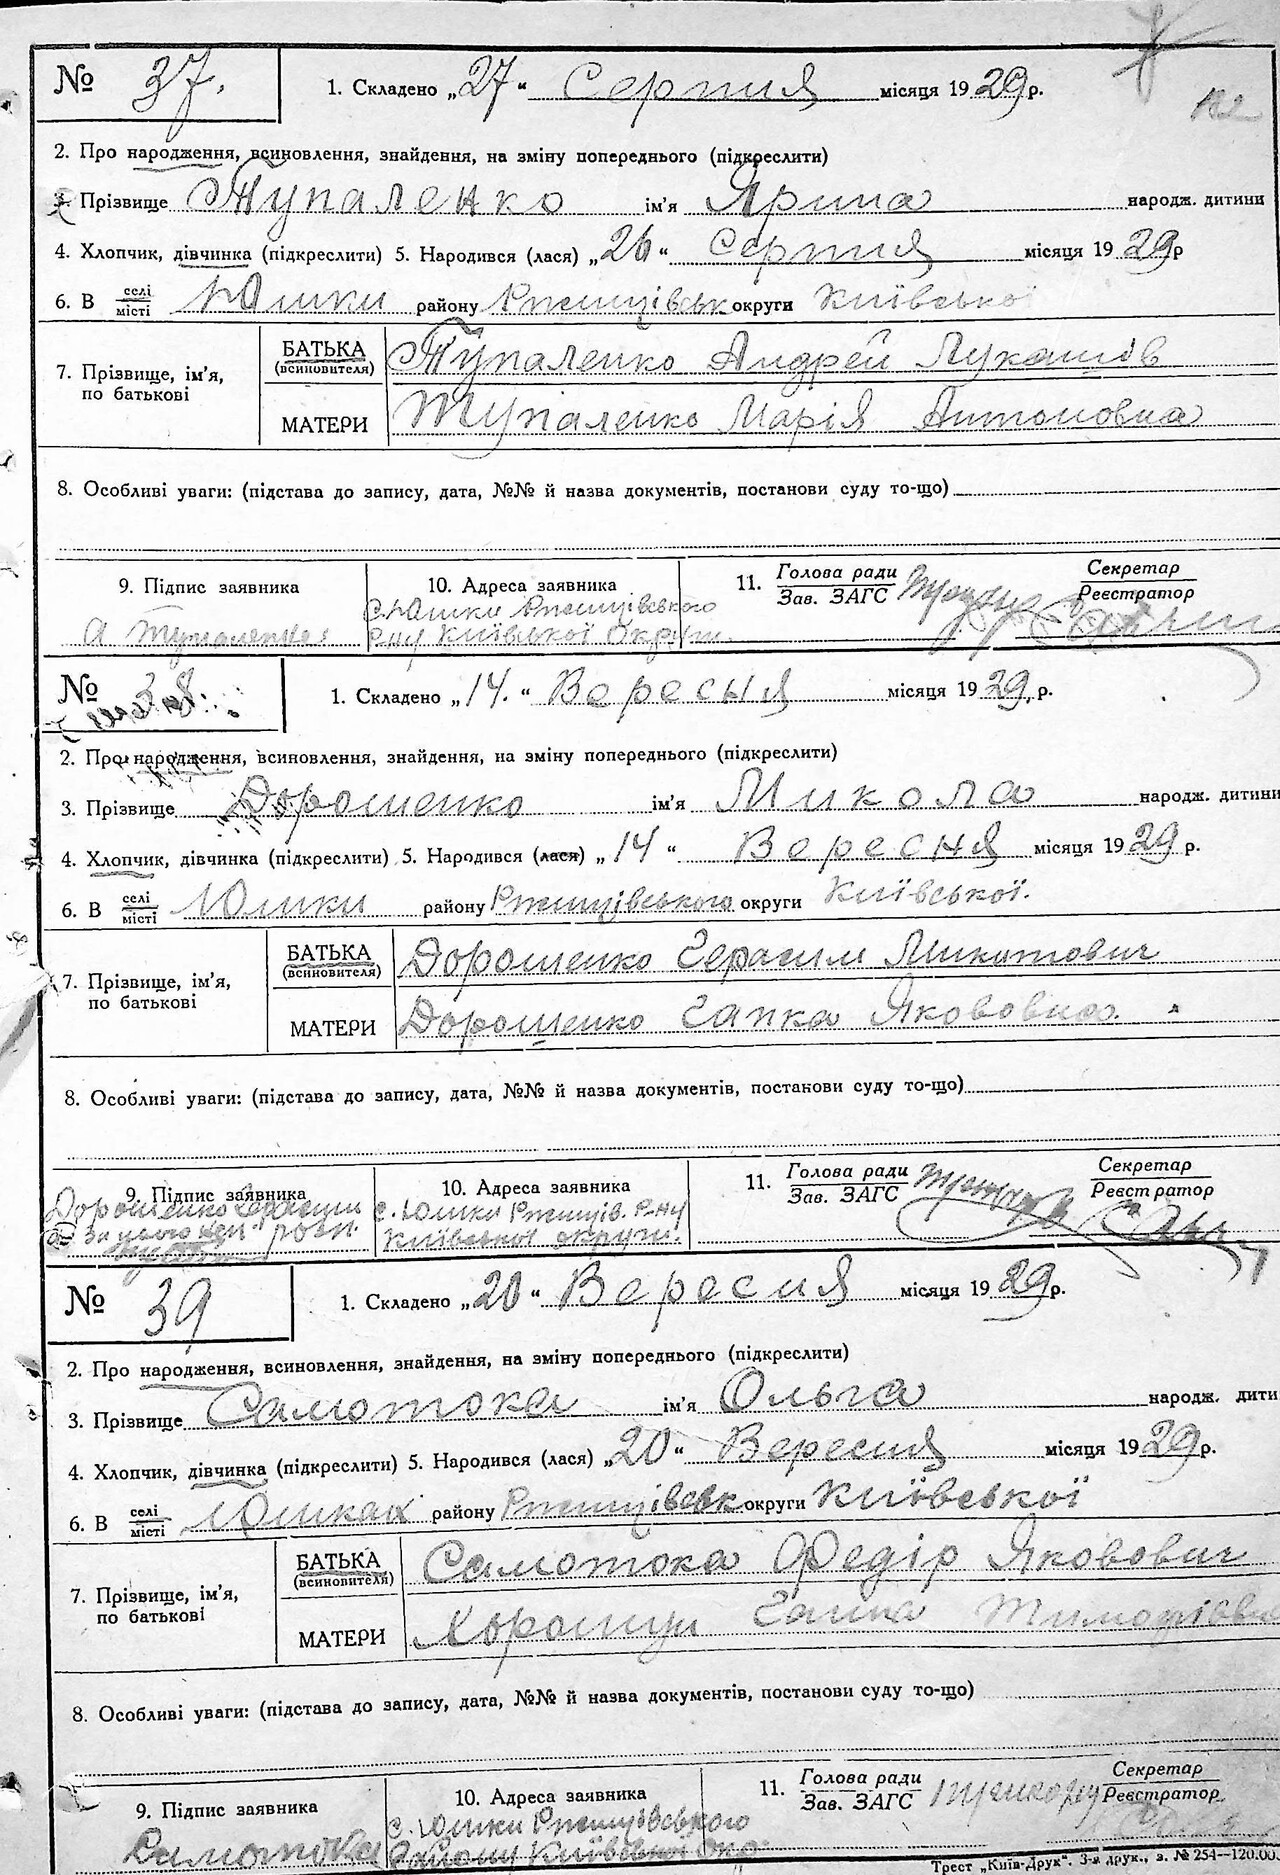 № 37. 1. Складено „27“ Серпня місяця 1929 р.
2. Про народження, всиновлення, знайдення, на зміну попереднього (підкреслити)
3. Прізвище Тупаленко ім'я Ярина народж. дитини
4. Хлопчик, дівчинка (підкреслити) 5. Народився (лася) „26“ Серпня місяця 1929 р
6. В селі/місті Юшки району Ржищівськ округи Київської
7. Прізвище, ім'я, по батькові
БАТЬКА (всиновителя) Тупаленко Андрей Лукашів
МАТЕРИ Тупаленко Марія Антоновна
8. Особливі уваги: (підстава до запису, дата, №№ й назва документів, постанови суду то-що)
9. Підпис заявника 10. Адреса заявника 11. Голова ради/Зав. ЗАГС Секретар/Реєстратор
А Тупаленко с. Юшки Ржищівського
р-ну Київської Округи.
№ 38. 1. Складено „14.“ Вересня місяця 1929 р.
2. Про народження, всиновлення, знайдення, на зміну попереднього (підкреслити)
3. Прізвище Дорошенко ім'я Микола народж. дитини
4. Хлопчик, дівчинка (підкреслити) 5. Народився (лася) „14“ Вересня місяця 1929 р.
6. В селі/місті Юшки району Ржищівського округи Київської.
7. Прізвище, ім'я, по батькові
БАТЬКА (всиновителя) Дорошенко Герасим Микитович
МАТЕРИ Дорошенко Гапка Якововна.
8. Особливі уваги: (підстава до запису, дата, №№ й назва документів, постанови суду то-що)
9. Підпис заявника 10. Адреса заявника 11. Голова ради/Зав. ЗАГС Секретар/Реєстратор
Дорошенко Герасим с. Юшки Ржищів. р-ну
а за нього неп. розп. Київської округи.
№ 39 1. Складено „20“ Вересня місяця 1929 р.
2. Про народження, всиновлення, знайдення, на зміну попереднього (підкреслити)
3. Прізвище Самотока ім'я Ольга народж. дити
4. Хлопчик, дівчинка (підкреслити) 5. Народився (лася) „20“ Вересня місяця 1929 р.
6. В селі/місті Юшках району Ржищівськ округи Київської
7. Прізвище, ім'я, по батькові
БАТЬКА (всиновителя) Самотока Федір Яковович
МАТЕРИ Хорошун Ганна Тимофіївна
8. Особливі уваги: (підстава до запису, дата, №№ й назва документів, постанови суду то-що)
9. Підпис заявника 10. Адреса заявника 11. Голова ради/Зав. ЗАГС Секретар/Реєстратор
Самотока с. Юшки Ржищівського
району Київської Окр.
Трест „Київ-Друк“. 3-я друк., з. № 254—120.00